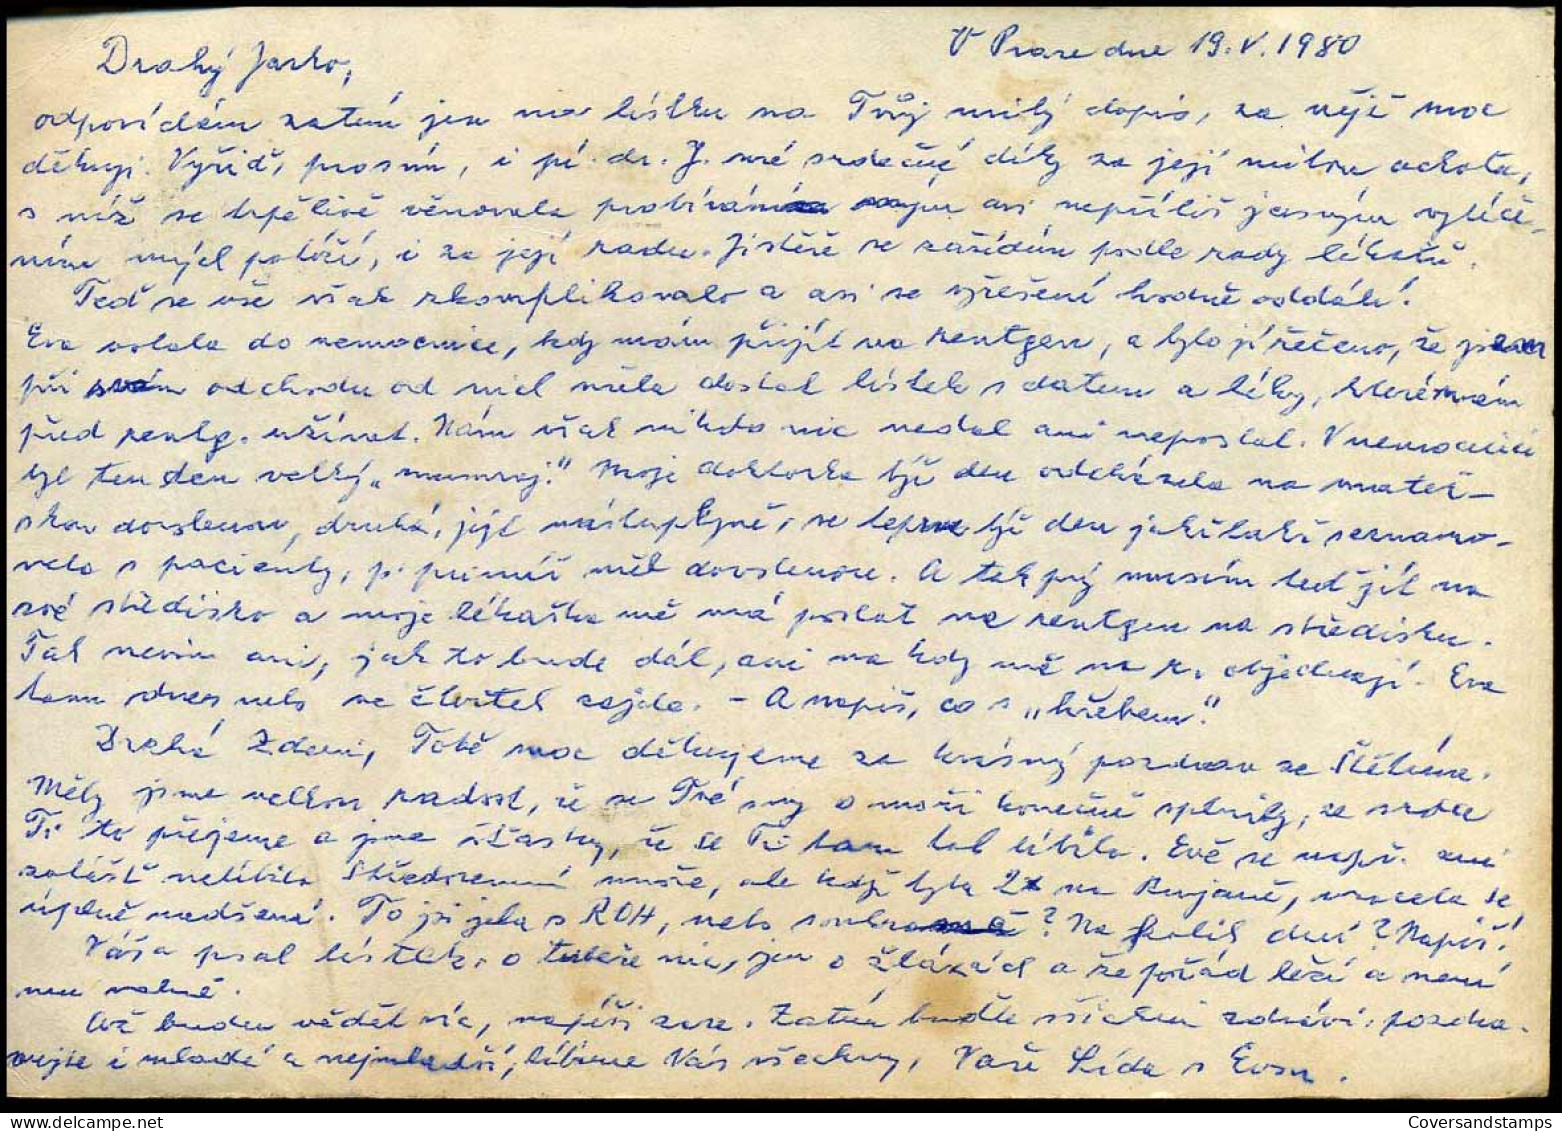 V Praze dne 19.V.1980
Drahý Jarko,
odpovídám zatím jen na lístku na Tvůj milý dopis, za nějž moc
děkuji. Vyřiď, prosím, i pí. dr. J. mé srdečné díky za její milou ochotu,
s níž se trpělivě věnovala probírání mým asi nepříliš jasným vylíče-
ním mých potíží, i za její radu. Jistěže se zařídím podle rady lékařů.
Teď se vše však zkomplikovalo a asi se vyřešení hodně oddálí.
Eva volala do nemocnice, kdy mám přijít na rentgen, a bylo jí řečeno, že jsem
při odchodu od nich měla dostat lístek s datem a léky, které mám
před rentg. užívat. Nám však nikdo nic nedal ani neposlal. V nemocnici
byl ten den velký „mumraj." Moje doktorka týž den odcházela na mateř-
skou dovolenou, druhá, její nástupkyně, se teprve týž den jakžtakž seznamo-
vala s pacienty, p. primář měl dovolenou. A tak prý musím teď jít na
své středisko a moje lékařka mě má poslat na rentgen na středisku.
Tak nevím ani, jak to bude dál, ani na kdy mě na r. objednají. Eva
tam dnes nebo ve čtvrtek zajde. – A napiš, co s „hřebem."
Drahá Zdeni, Tobě moc děkujeme za krásný pozdrav ze Štětína.
Měly jsme velkou radost, že se Tvé sny o moři konečně splnily, ze srdce
Ti to přejeme a jsme šťastny, že se Ti tam tak líbilo. Evě se např. ani
zvlášť nelíbilo Středozemní moře, ale když byla 2x na Rujaně, vracela se
úplně nadšená. To jsi jela s ROH, nebo soukromě? Na kolik dní? Napiš!
Váša psal lístek, o tuteže nic, jen o žlázách a že pořád leží a není
mu volně.
Až budu vědět víc, napíši zase. Zatím buďte všichni zdrávi, pozdra-
vujte i mladé a nejmladší, líbáme Vás všechny, Vaše Lída s Evou.
CoversandStamps